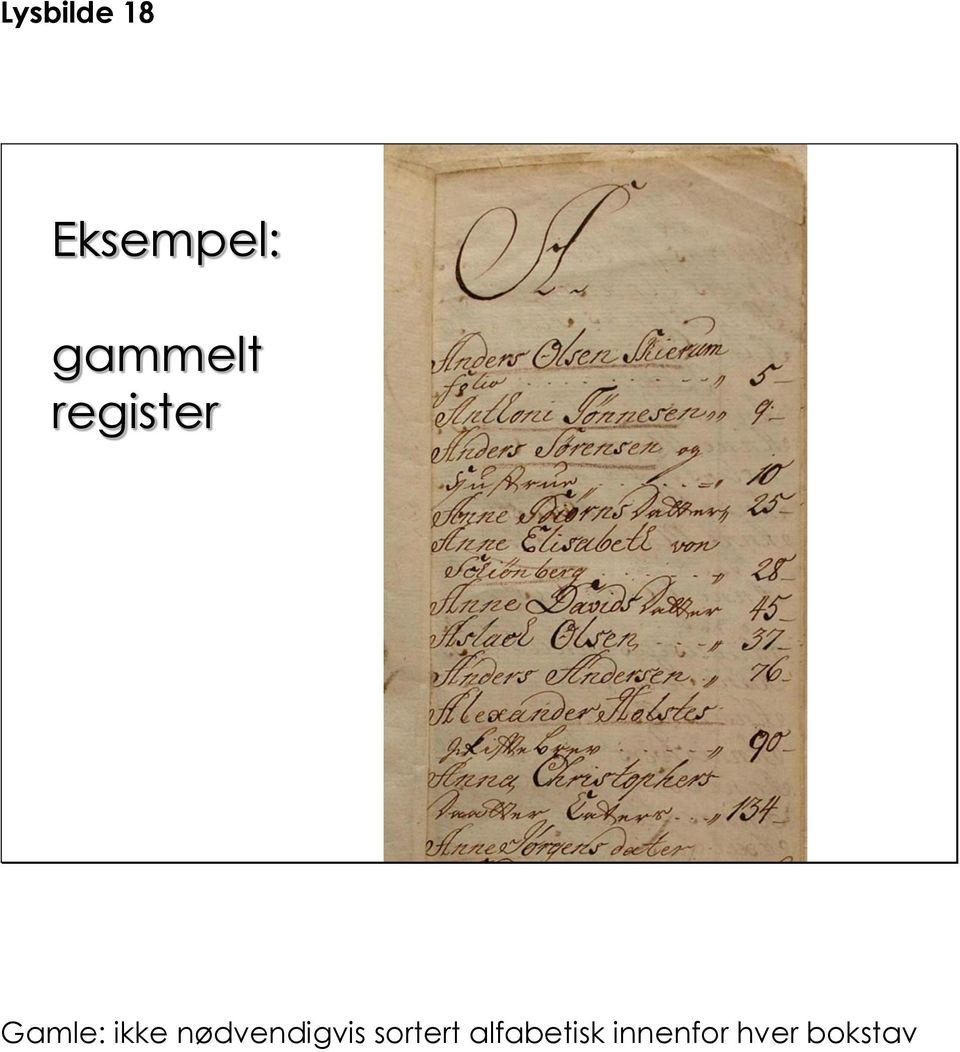 Lysbilde 18
Eksempel:
gammelt
register
A.
Anders Olsen Skierum
folio 5
Anthoni Tønnesen 9
Anders Sørensen og
Hustrue 10
Anne Biørns Datter 25
Anne Elisabeth von
Schiønberg 28
Anne Davids Datter 45
Aslach Olsen 37
Anders Andersen 76
Alexander Holstes
Skiftebrev 90
Anna Christophers
Daatter 134
Anne Jørgens dater
Gamle: ikke nødvendigvis sortert alfabetisk innenfor hver bokstav